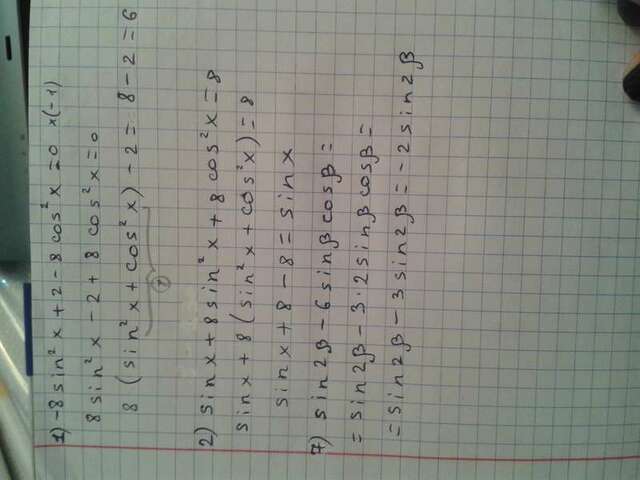 1) -8sin²x + 2 - 8cos²x = 0 x(-1)
8sin²x - 2 + 8cos²x = 0
8(sin²x + cos²x) - 2 = 8 - 2 = 6
1
2) sinx + 8sin²x + 8cos²x = 8
sinx + 8(sin²x + cos²x) = 8
sinx + 8 - 8 = sinx
7) sin2β - 6sinβ cosβ =
= sin2β - 3·2sinβ cosβ =
= sin2β - 3sin2β = -2sin2β